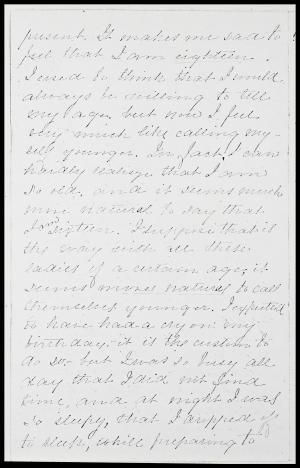 present. It makes me sad to
feel that I am eighteen.
I used to think that I would
always be willing to tell
my age, but now I feel
very much like calling my-
self younger. In fact, I can
hardly realize that I am
so old, and it seems much
more natural to say that
I'm sixteen. I suppose that is
the way with all these
ladies of a certain age; it
seems more natural to call
themselves younger. I expected
to have had a cry on my
birthday, it is the custom to
do so, but I was so busy all
day that I did not find
time, and at night I was
so sleepy, that I dropped off
to sleep, while preparing to